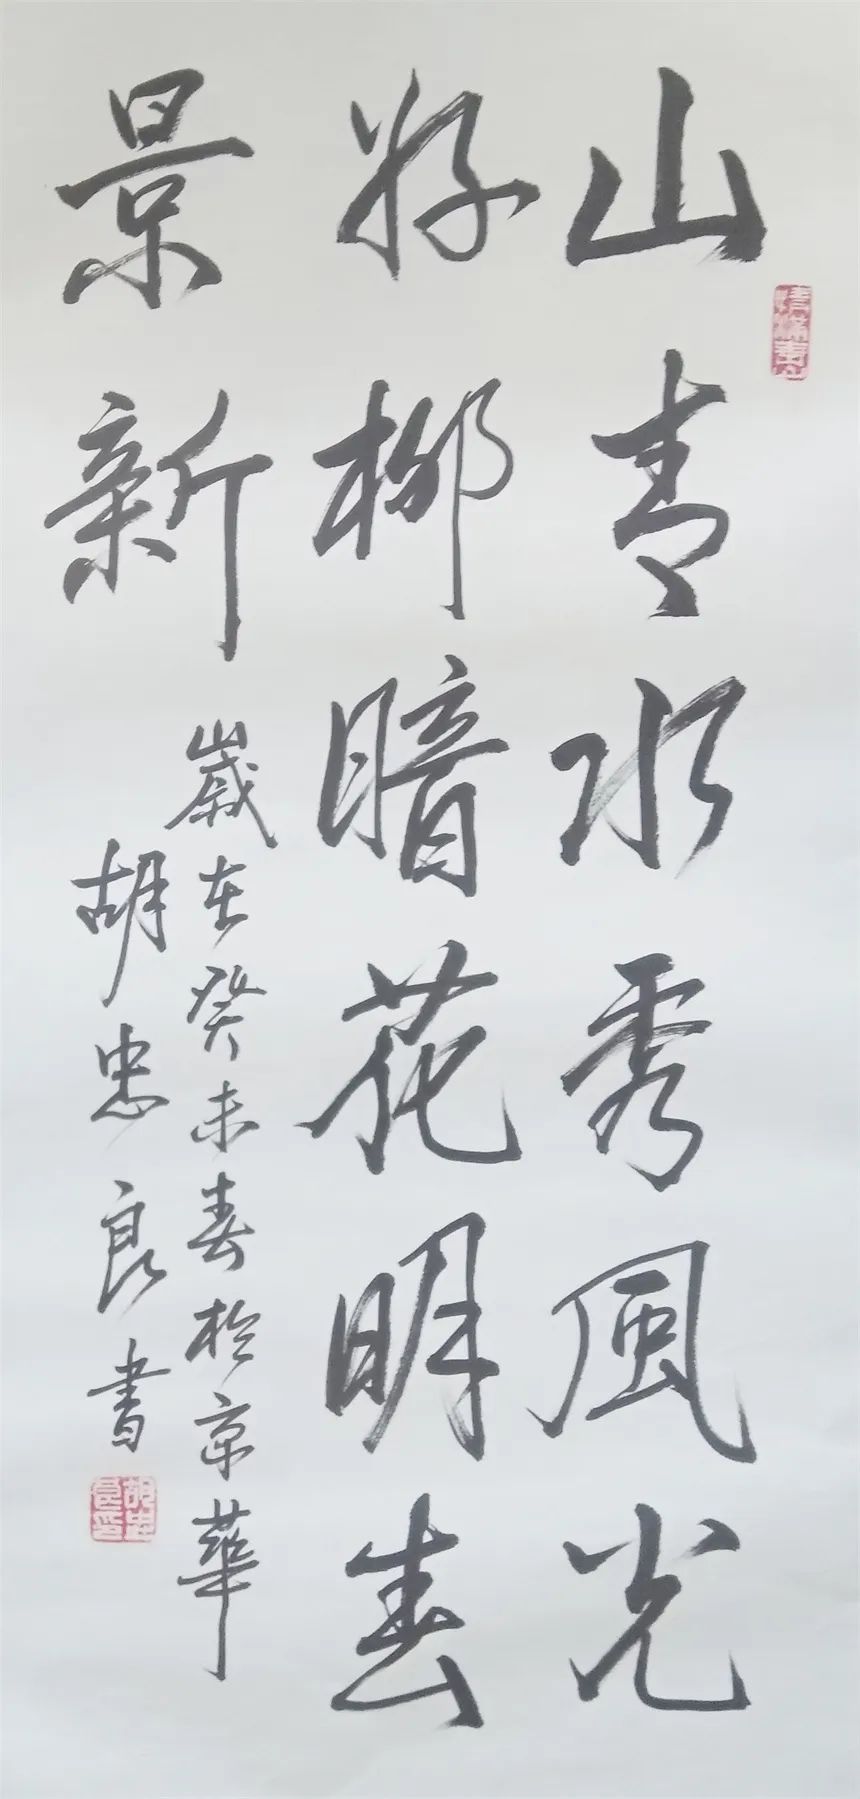 山青水秀風光
好柳暗花明春
景新
歲在癸未春於京華
胡忠良書
胡忠良印